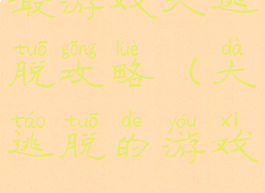 游戏大逃
tuō gōng lüè dà
脱攻略（大
táo tuō de yóu xì
逃脱的游戏